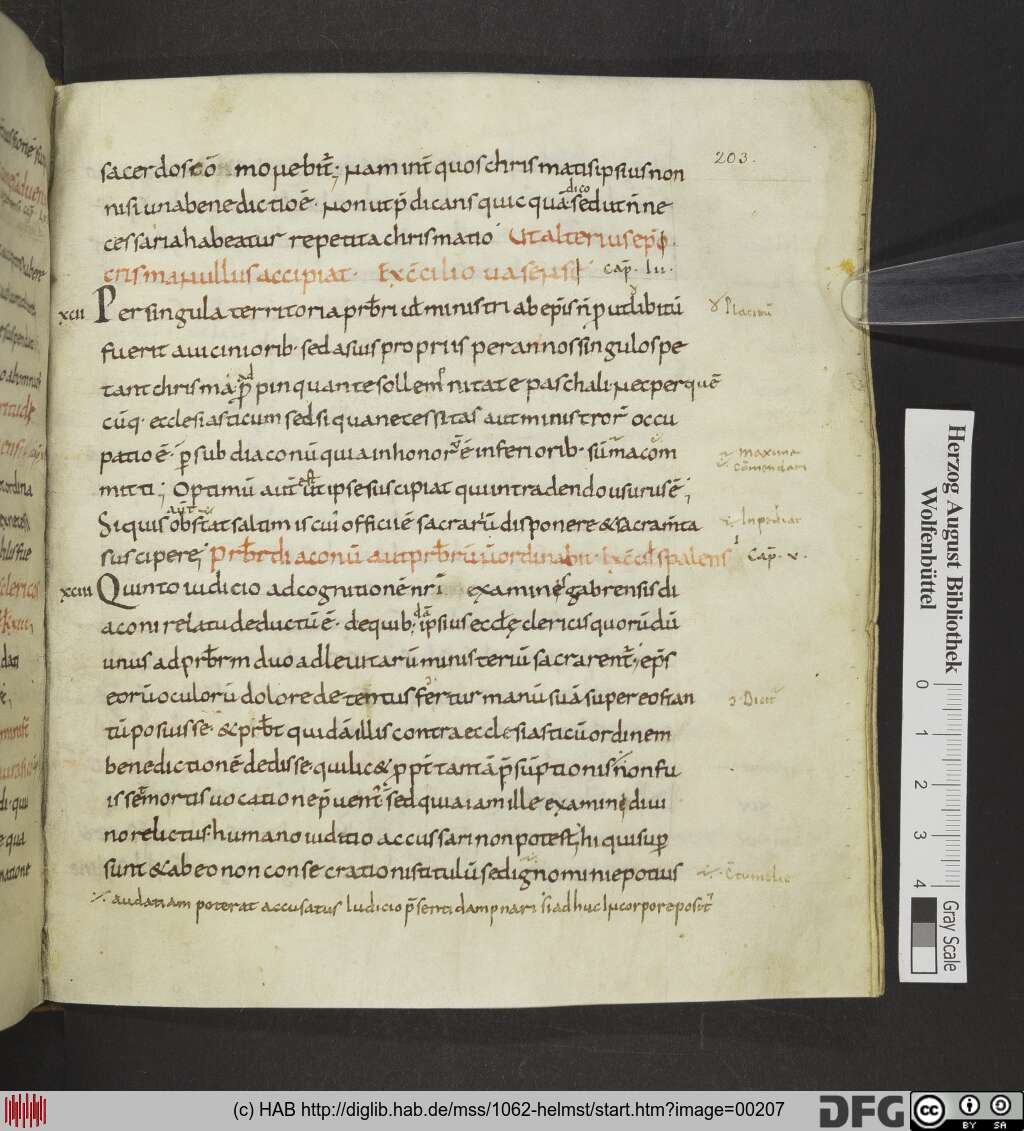 203.
sacerdos cō moɴebit̄; ɴam int̄ quos chrismatis ipsius non
nisi una benedictio ē. ɴon ut p̄dicans quicquā dico sed ut n̄ ne
cessaria habeatur repetita chrismatio Ut alterius ep̄i
crisma ɴullus accipiat. Ex c̄cilio uasensi cap̄. lii.
xcii Per singula territoria prb̄ri ul̄ ministri ab ep̄is n̄ p̄ut libitū
fuerit a uicinioribꝰ sed a suis propriis per annos singulos pe
tant chrisma ad p̄pinquante sollemnitate paschali. ɴec per quē
cūq. ecclesiasticum sed si qua necessitas aut ministror̄ occu
patio ē. p̄ subdiaconū quia in honorē inferiorib. sūma com
mitti; Optimū aut̄ est ut ipse suscipiat qui in tradendo usurus ē;
Si quis aut̄ obstat saltim is cui officii ē sacrariū disponere & sacram̄ta
suscipere; Prb̄r̄ diaconū aut prb̄rū n̄ ordinabit. Ex c̄c. Ispalensi Cap̄. x.
xciii Quinto iudicio ad cognitionē nr̄i examinis egabrensis di
aconi relatu deductū ē. de quib; dā ipsius eccl̄ę clericis quorū dū
unus ad prb̄rm duo ad leuitarū ministeriū sacrarent̄; ep̄s
eorū oculorū dolore detentus fertur manū suā super eos tan
tū posuisse. & prb̄t quidā illis contra ecclesiasticū ordinem
benedictionē dedisse. qui lic& p̄pt̄ tantā p̄sūptionis non fu
is sē mortis uocatione p̄uent̄; sed quia iam ille examini diui
no relictus humano iuditio accussari non potest; hi qui sup̄
sunt & ab eo non consecrationis titulū sed ignominię potius
audatiam poterat accusatus Iudicio p̄senti dampnari si adhuc in corpore posit̄
Placitū
maxima
cōmendari
Inpediat
Dicit̄
Herzog August Bibliothek
Wolfenbüttel
0
1
2
3
4
Gray Scale
(c) HAB http://diglib.hab.de/mss/1062-helmst/start.htm?image=00207
DFG
cc
BY
SA